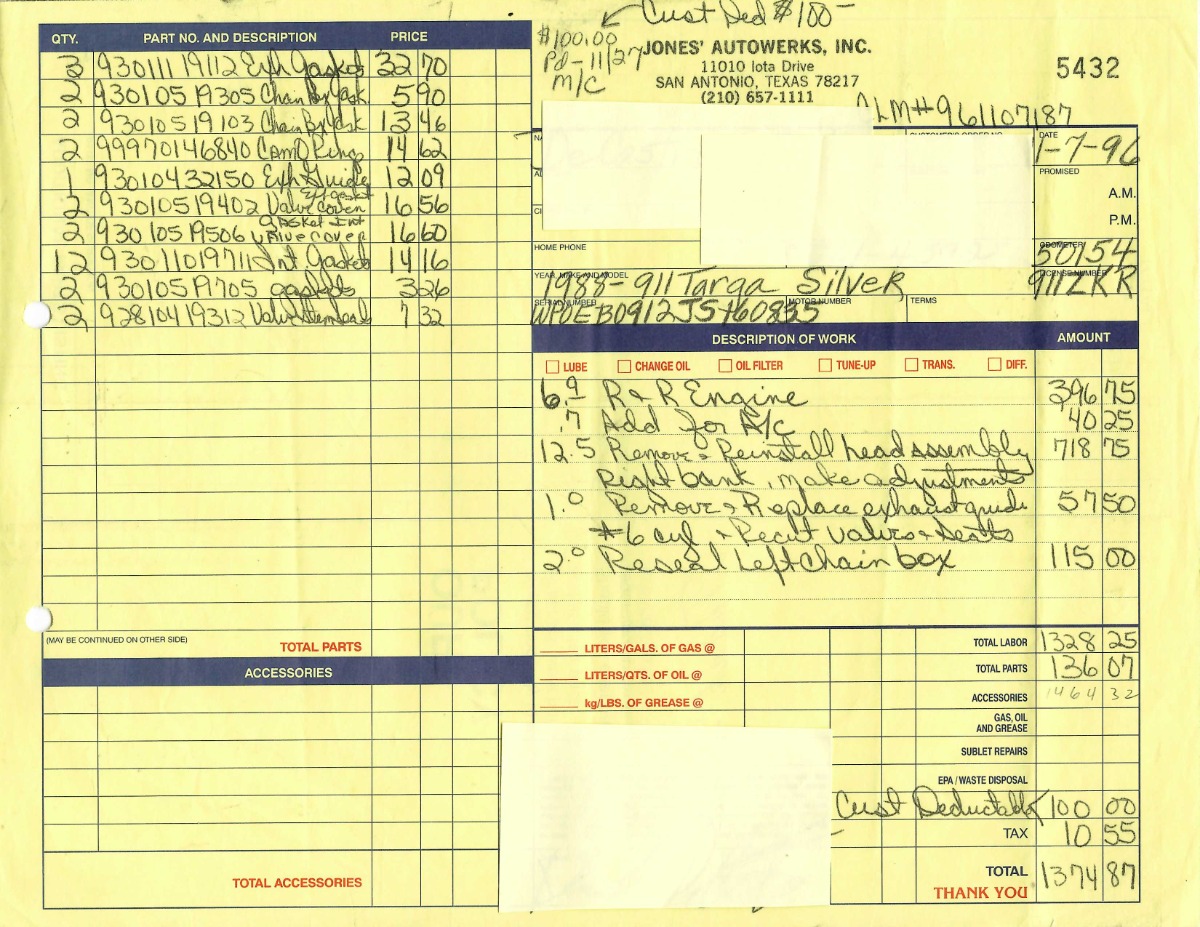 Cust Ded $100-
$100.00
Pd-11/27
M/C
JONES' AUTOWERKS, INC.
11010 Iota Drive
SAN ANTONIO, TEXAS 78217
(210) 657-1111
5432
LM#961107187
QTY. PART NO. AND DESCRIPTION PRICE
3 930111 19112 Exh Gaskets 32 70
2 930105 19305 Chain Bx Gask 5 90
2 930105 19103 Chain Bx Gask 13 46
2 99970146840 Cam O Rings 14 62
1 93010432150 Exh Guide 12 09
2 93010519402 Valve cover Ext gasket 16 56
2 930 105 19506 gasket Int valve cover 16 60
12 93011019711 Int Gaskets 14 16
2 93010519705 gaskets 3 26
2 92810419312 Valve Stem Seals 7 32
(MAY BE CONTINUED ON OTHER SIDE) TOTAL PARTS
ACCESSORIES
TOTAL ACCESSORIES
DATE
1-7-96
PROMISED
A.M.
P.M.
HOME PHONE
ODOMETER
50154
YEAR, MAKE AND MODEL
1988-911 Targa Silver
LICENSE NUMBER
911ZKR
SERIAL NUMBER MOTOR NUMBER TERMS
DESCRIPTION OF WORK AMOUNT
LUBE CHANGE OIL OIL FILTER TUNE-UP TRANS. DIFF.
6.9 R & R Engine 396 75
.7 Add for A/C 40 25
12.5 Remove & Reinstall head assembly 718 75
Right bank, make adjustments
1.0 Remove & Replace exhaust guide 57 50
#6 cyl & Recut valves & Seats
2.0 Reseal Left Chain box 115 00
LITERS/GALS. OF GAS @
LITERS/QTS. OF OIL @
kg/LBS. OF GREASE @
TOTAL LABOR 1328 25
TOTAL PARTS 136 07
ACCESSORIES 1464 32
GAS, OIL
AND GREASE
SUBLET REPAIRS
EPA / WASTE DISPOSAL
Cust Deductable 100 00
TAX 10 55
TOTAL 1374 87
THANK YOU